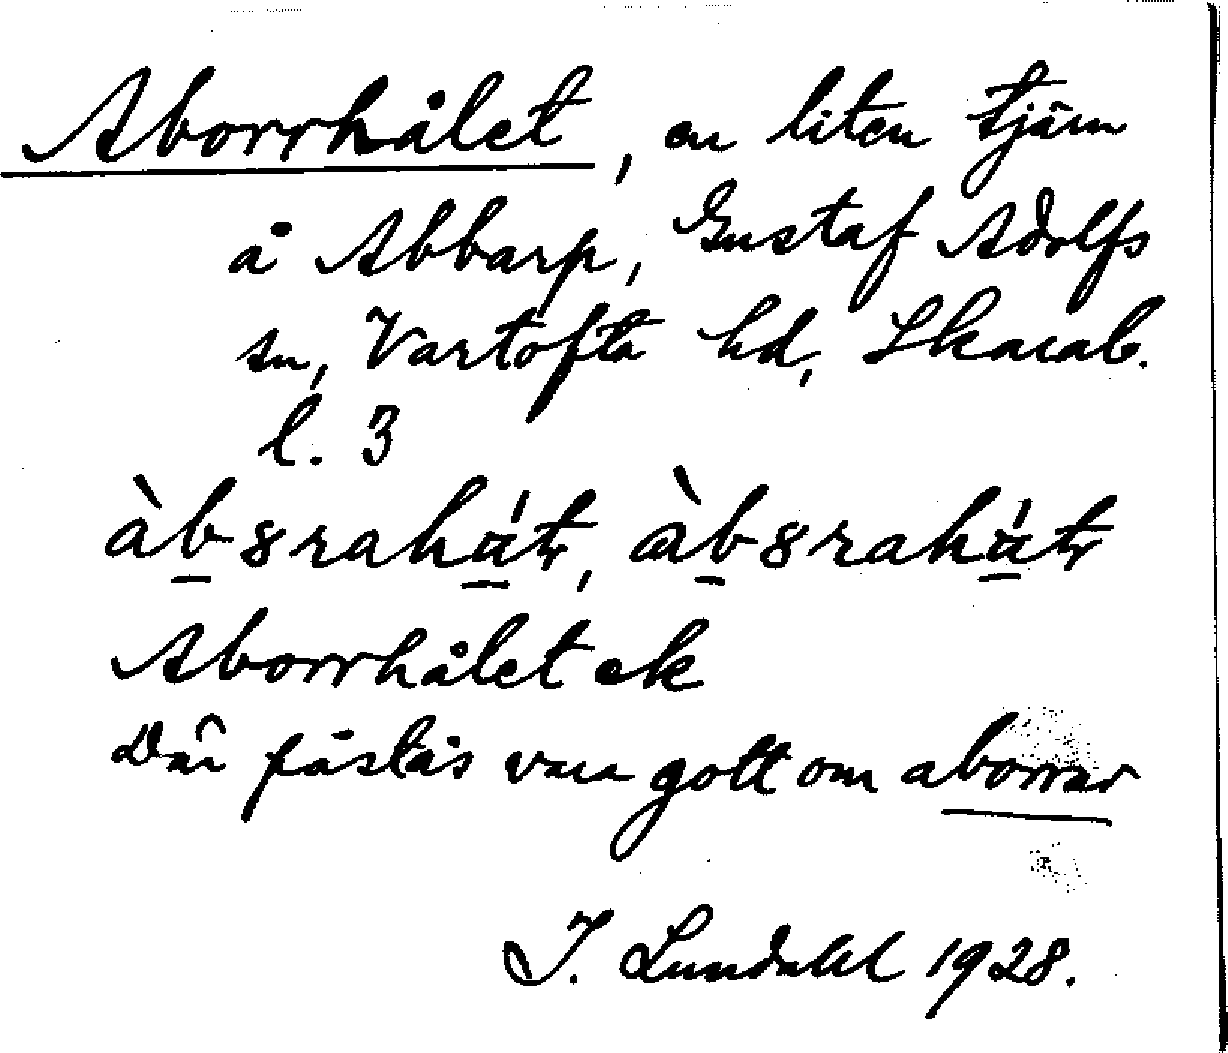 Aborrhålet, en liten tjärn
å Abbarp, Gustaf Adolfs
sn, Vartofta hd, Skarab.
l. 3
Aborrhålet ek
Där påstås vara gott om aborrar
J. Lundahl 1928.